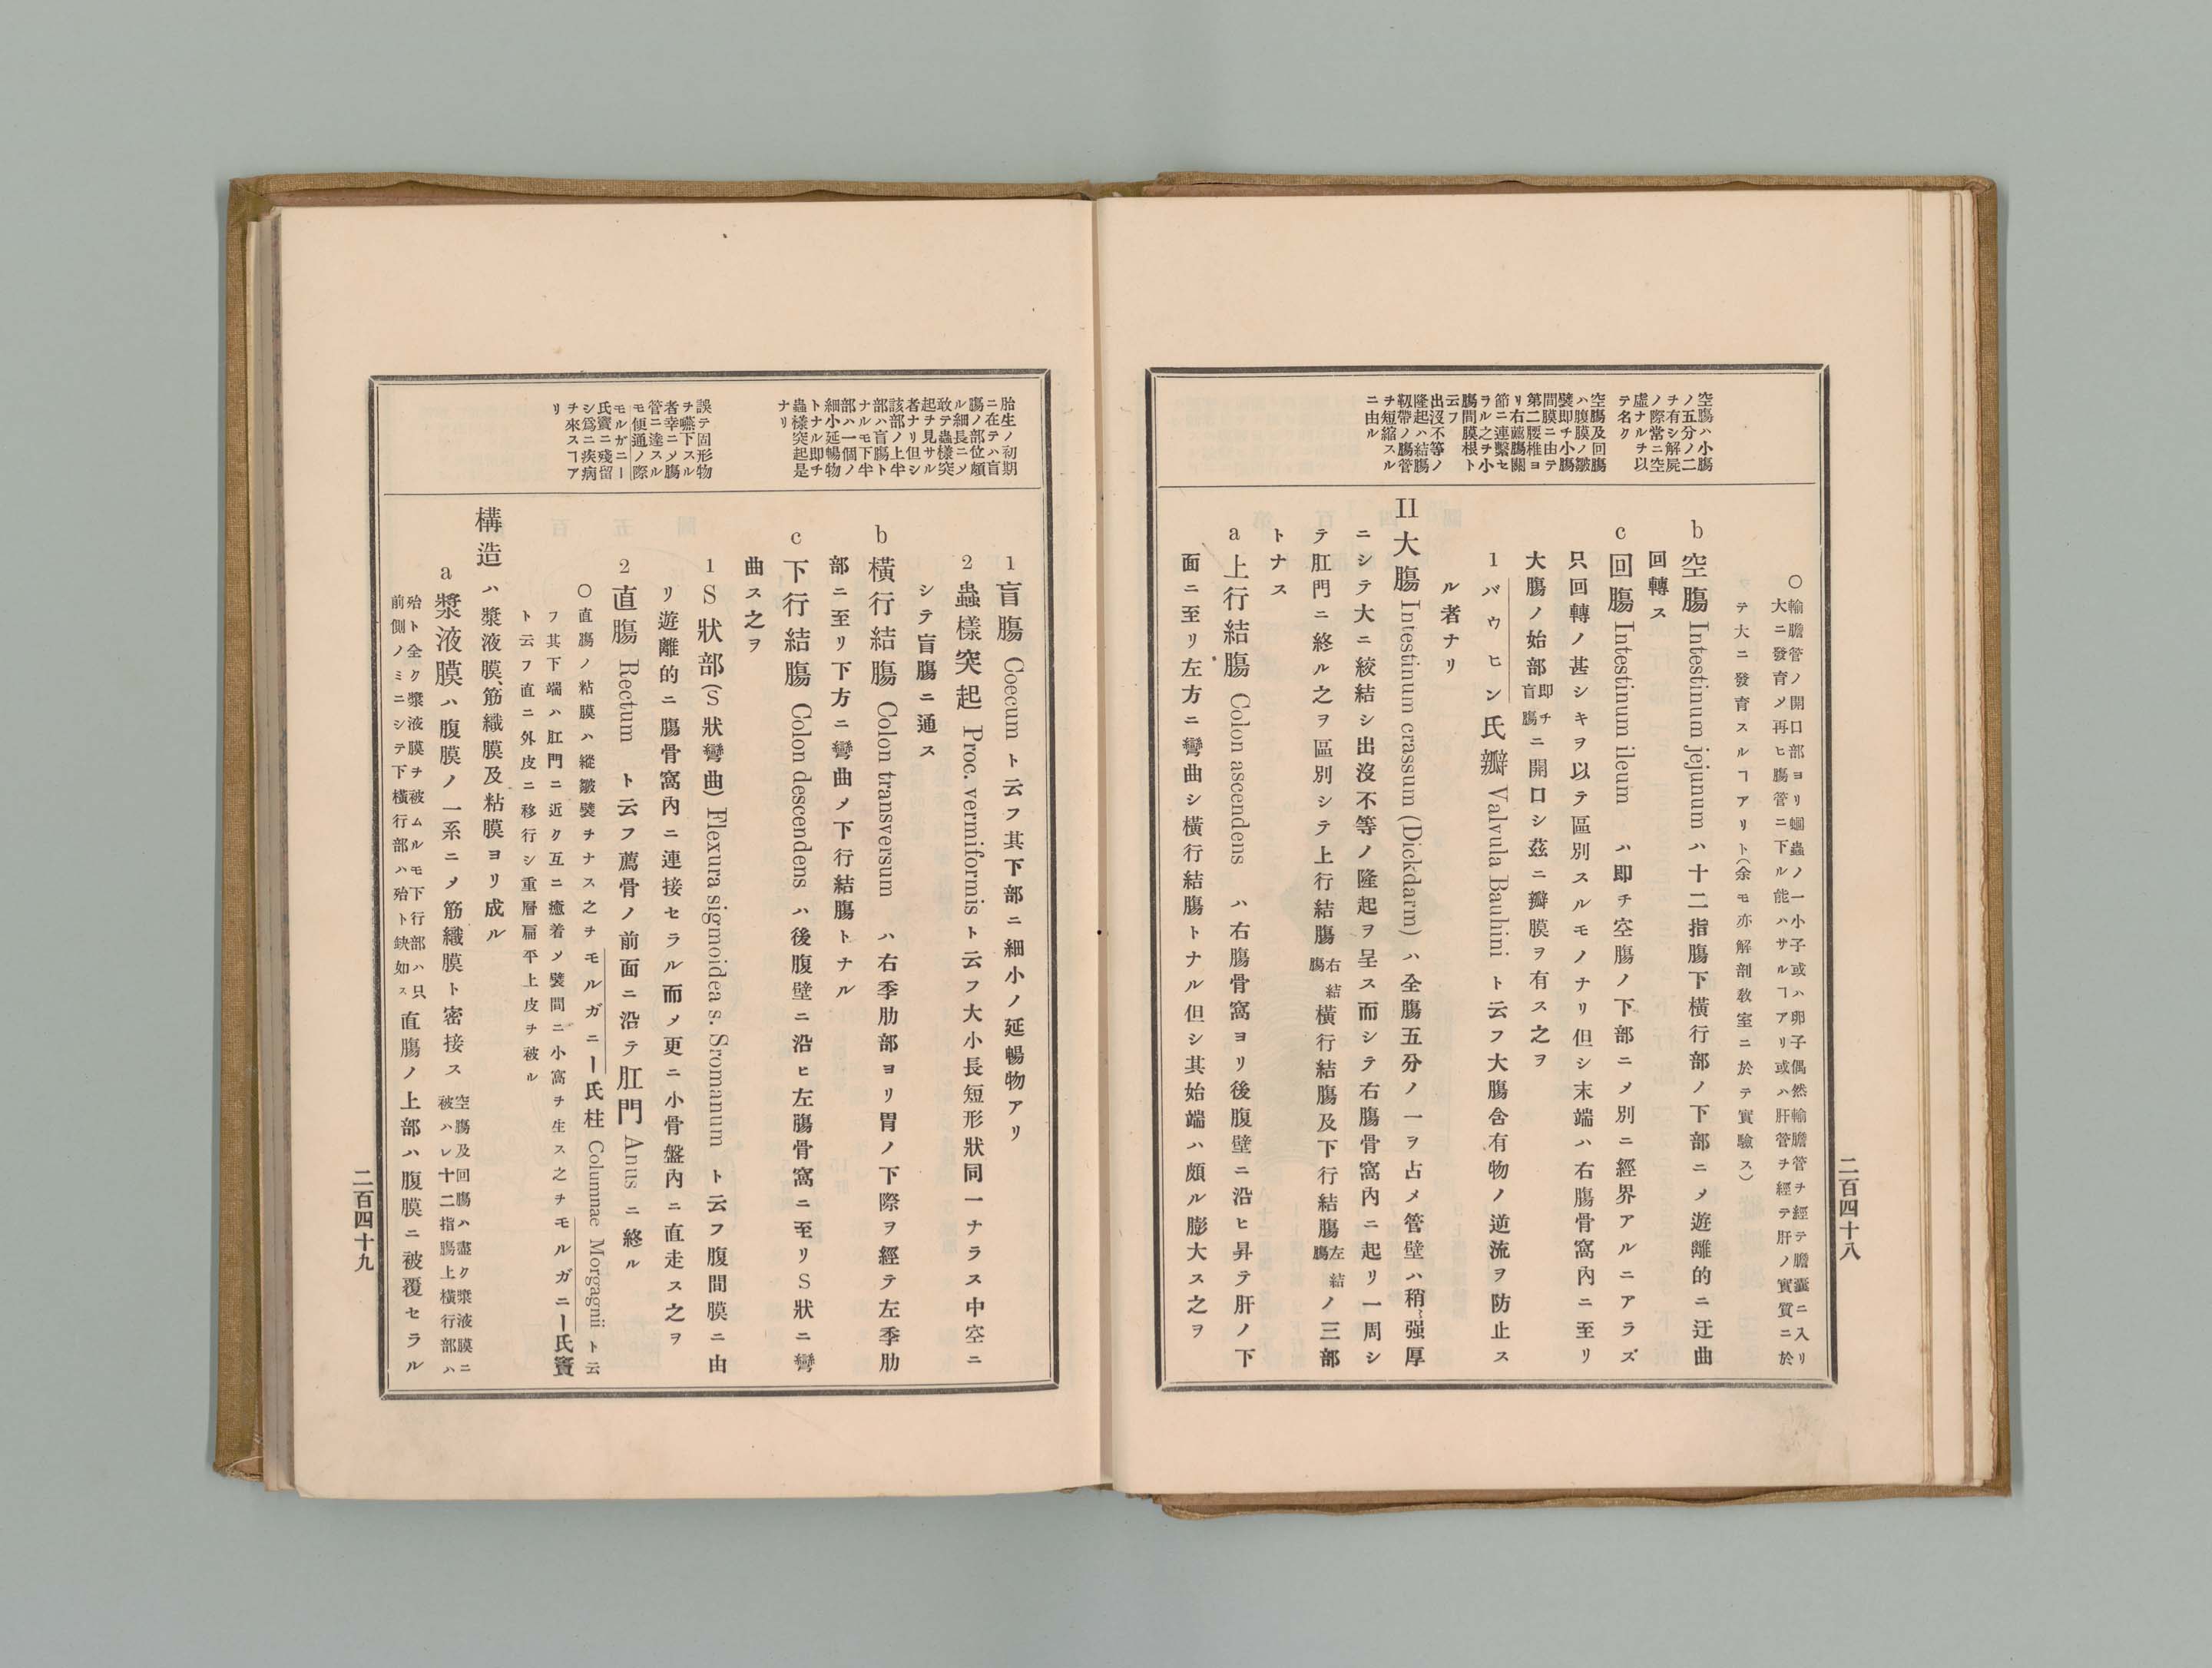 空膓ハ小膓
ノ五分ノ二
チ有シ解屍
ノ際常ニ空
虛ナルチ以
テ名ク
空膓及回膓
ハ腹膜ノ皺
襞即チ小膓
間膜ニ由テ
第二腰椎ヨ
リ右薦膓關
節ニ連繫セ
ラル之チ小
膓間膜根ト
云フ
出沒不等ノ
隆起ハ結膓
靱帶ノ膓管
チ短縮スル
ニ由ル
○輸膽管ノ開口部ヨリ蛔蟲ノ一小子或ハ卵子偶然輸膽管チ經テ膽囊ニ入リ
大ニ發育ノ再ヒ膓管ニ下ル能ハサルヿアリ或ハ肝管チ經テ肝ノ實質ニ於
テ大ニ發育スルヿアリト(余モ亦解剖敎室ニ於テ實驗ス)
b 空膓 Intestinum jejunum ハ十二指膓下橫行部ノ下部ニメ遊離的ニ迂曲
回轉ス
c 回膓 Intestinum ileum ハ即チ空膓ノ下部ニメ別ニ經界アルニアラズ
只回轉ノ甚シキヲ以テ區別スルモノナリ但シ末端ハ右膓骨窩內ニ至リ
大膓ノ始部即チ盲膓ニ開口シ茲ニ瓣膜ヲ有ス之ヲ
1 バウヒン氏瓣 Valvula Bauhini ト云フ大膓含有物ノ逆流ヲ防止ス
ル者ナリ
II 大膓 Intestinum crassum (Dickdarm) ハ全膓五分ノ一ヲ占メ管壁ハ稍〻强厚
ニシテ大ニ絞結シ出沒不等ノ隆起ヲ呈ス而シテ右膓骨窩內ニ起リ一周シ
テ肛門ニ終ル之ヲ區別シテ上行結膓右結膓橫行結膓及下行結膓左結膓ノ三部
トナス
a 上行結膓 Colon ascendens ハ右膓骨窩ヨリ後腹壁ニ沿ヒ昇テ肝ノ下
面ニ至リ左方ニ彎曲シ橫行結膓トナル但シ其始端ハ頗ル膨大ス之ヲ
二百四十八
胎生ノ初期
ニ在テハ盲
膓ノ部位頗
ル細長ニソ
敢テ蟲樣突
起チ見サル
者ナリ但シ
該部ノ上半
部ハ盲膓ト
ナルモ下半
部ハ一個ノ
細小延暢物
トナル即チ
蟲樣突起是
ナリ
誤テ固形物
チ嚥下スル
者幸ニメ膓
管ニ達スル
モ便通ノ際
モルガニー
氏竇ニ殘留
シ爲ニ疾病
チ來スヿア
リ
1 盲膓 Coecum ト云フ其下部ニ細小ノ延暢物アリ
2 蟲樣突起 Proc. vermiformis ト云フ大小長短形狀同一ナラス中空ニ
シテ盲膓ニ通ス
b 橫行結膓 Colon transversum ハ右季肋部ヨリ胃ノ下際ヲ經テ左季肋
部ニ至リ下方ニ彎曲メ下行結膓トナル
c 下行結膓 Colon descendens ハ後腹壁ニ沿ヒ左膓骨窩ニ至リS狀ニ彎
曲ス之ヲ
1 S狀部(S狀彎曲) Flexura sigmoidea s. Sromanum ト云フ腹間膜ニ由
リ遊離的ニ膓骨窩內ニ連接セラル而メ更ニ小骨盤內ニ直走ス之ヲ
2 直膓 Rectum ト云フ薦骨ノ前面ニ沿テ肛門 Anus ニ終ル
○直膓ノ粘膜ハ縱皺襞チナス之チモルガニー氏柱 Columnae Morgagnii ト云
フ其下端ハ肛門ニ近ク互ニ癒着メ襞間ニ小窩チ生ス之チモルガニー氏竇
ト云フ直ニ外皮ニ移行シ重層扁平上皮チ被ル
構造ハ漿液膜、筋織膜及粘膜ヨリ成ル
a 漿液膜ハ腹膜ノ一系ニメ筋織膜ト密接ス空膓及回膓ハ盡ク漿液膜ニ
被ハレ十二指膓上橫行部ハ
殆ト全ク漿液膜チ被ムルモ下行部ハ只
前側ノミニシテ下橫行部ハ殆ト缺如ス直膓ノ上部ハ腹膜ニ被覆セラル
二百四十九